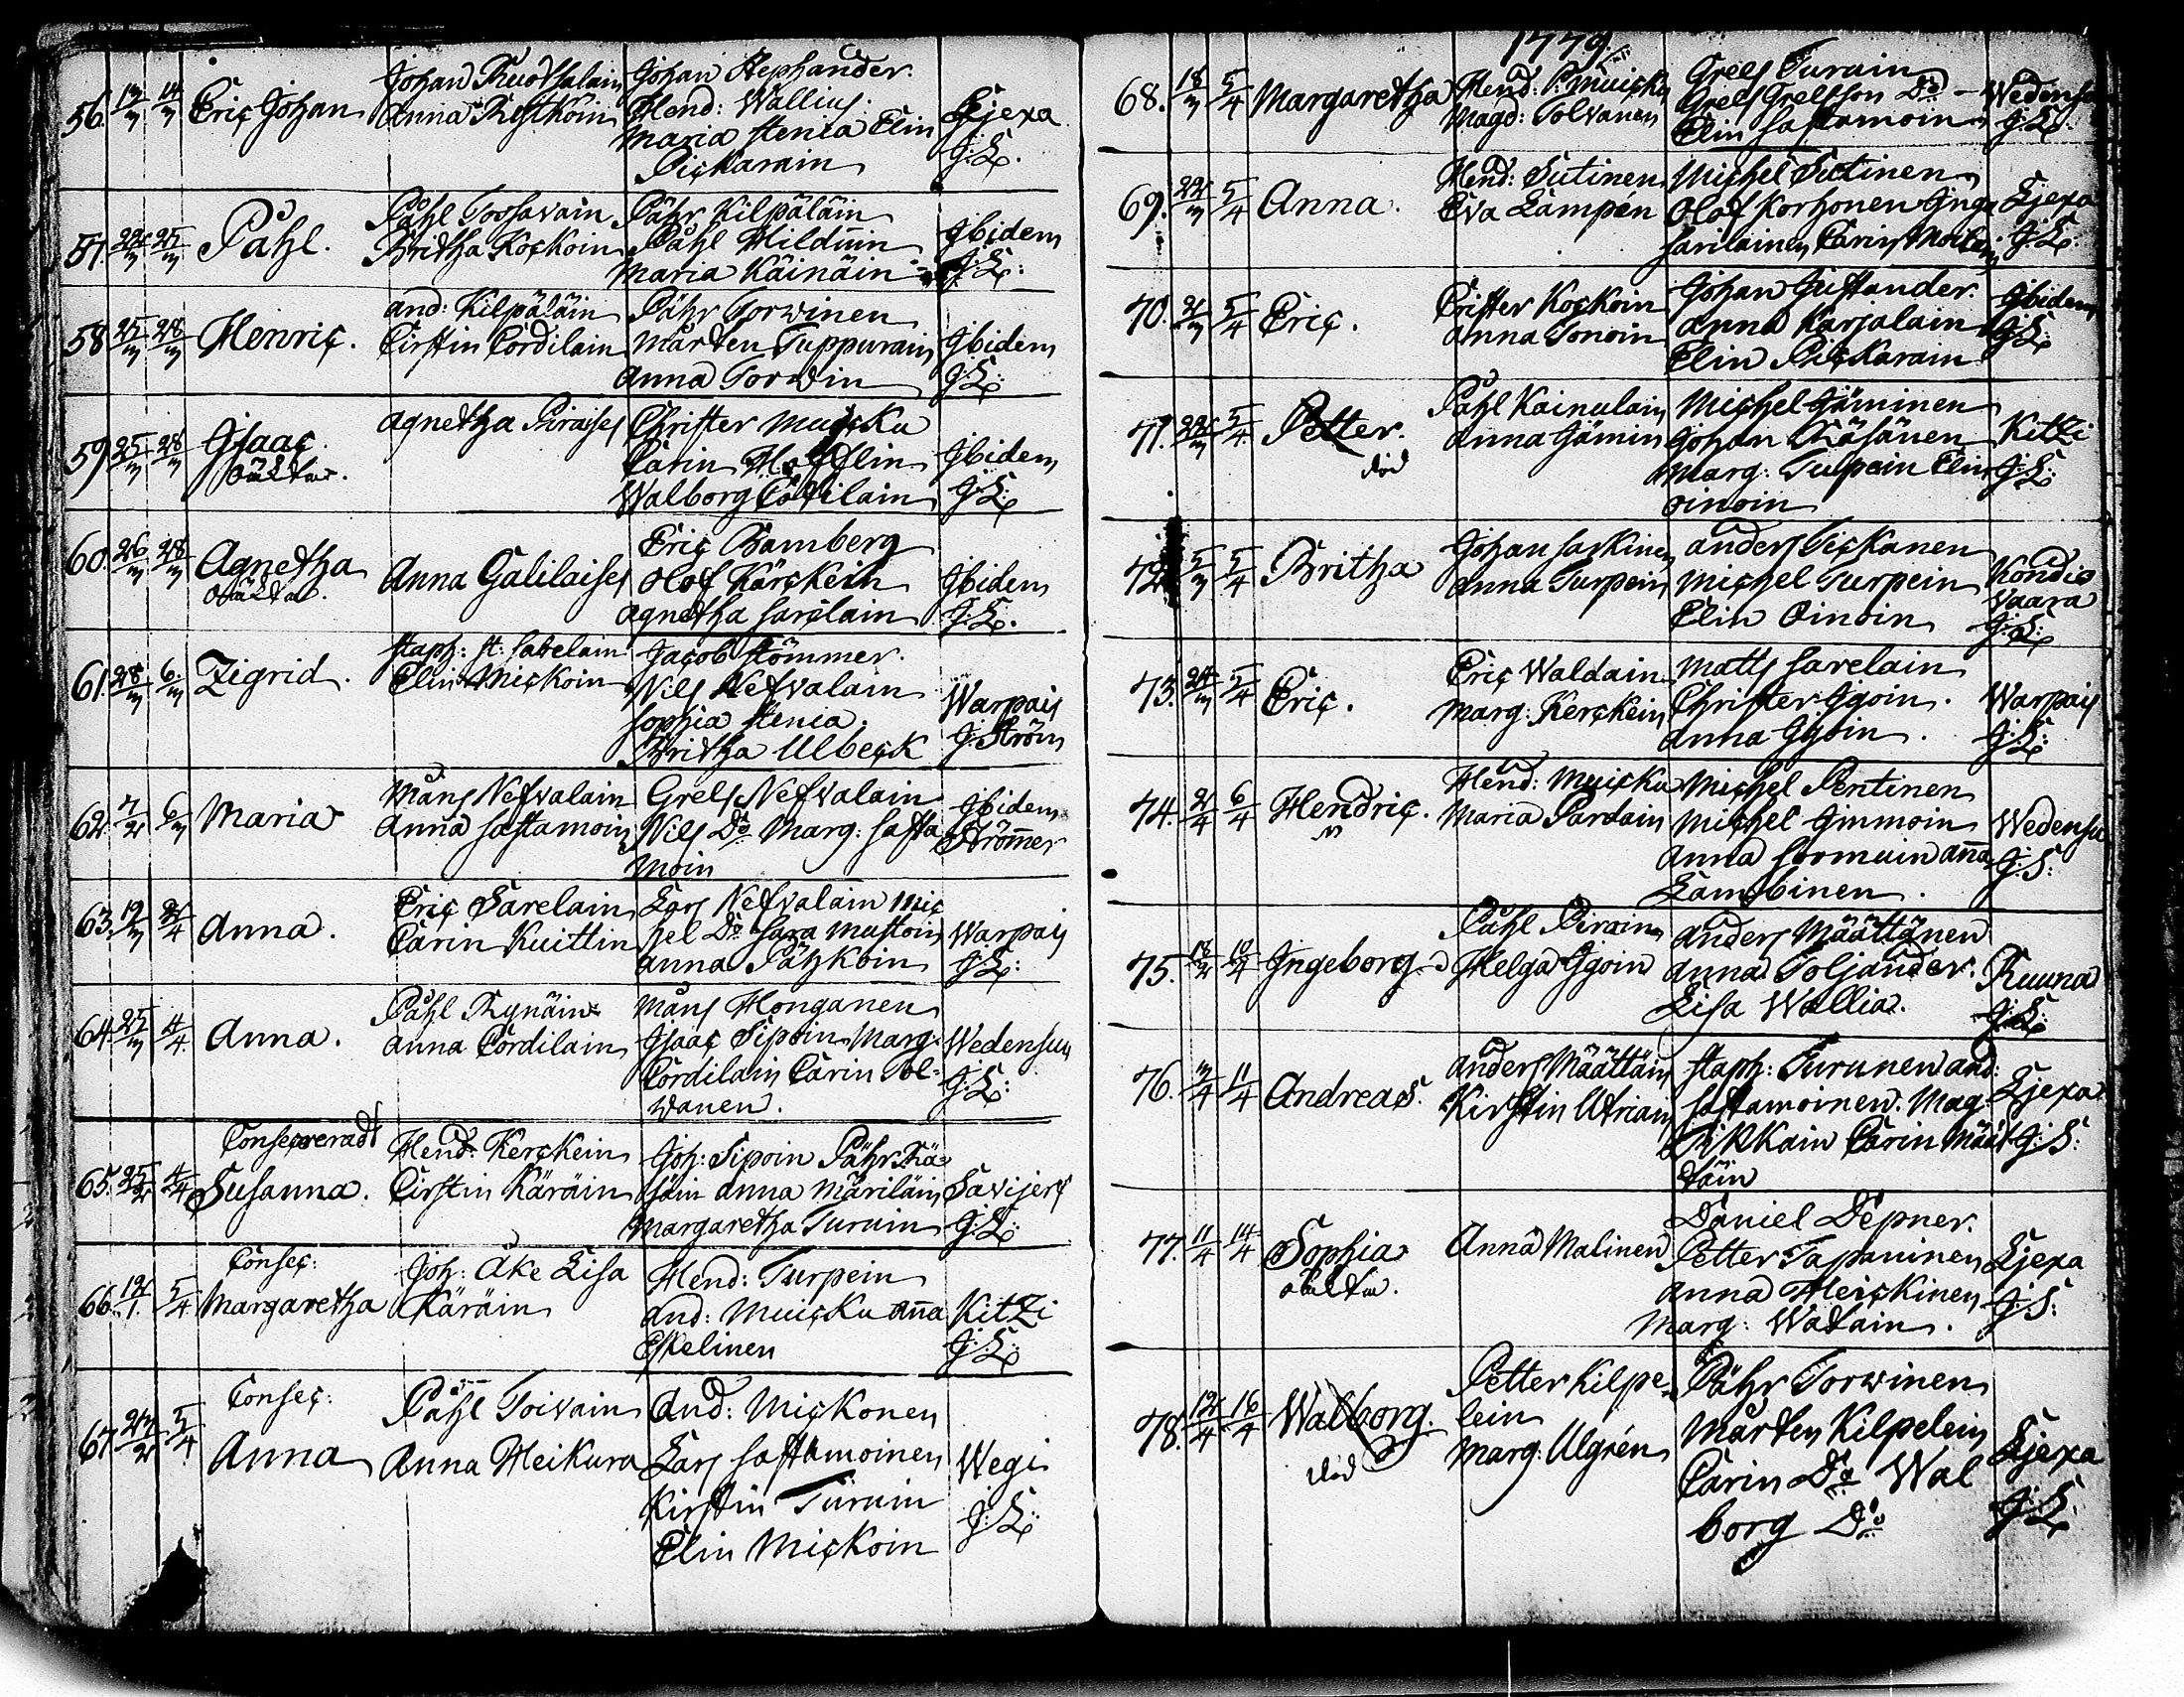 56. 13/3 14/3 Eric Johan
Johan Ruotsalain
Anna Restkoin
Johan Stephander.
Hend: Wallius.
Maria Stenia Elin
Pickarain
Ljexa
J:L.
57. 22/3 25/3 Påhl.
Påhl Toosavain
Britha Kockoin
Påhr Kilpäläin
Påhl Hildunin
Maria Käinäin
Ibidem
J:L:
58 25/3 28/3 Henric.
And: Kilpäläin
Cirstin Cordilain
Påhr Torwinen
Mårten Tuppurain
Anna Torwin
Ibidem
J:L:
59 25/3 28/3 Isaac
oäkta.
Agnetha Piraises
Christer Muicku
Carin
Walborg
Ibidem
J:L:
60. 26/3 28/3 Agnetha
oäkta.
Anna Galilaises
Eric Bamberg
Olof Kärckein
Agnetha Sarelain
Ibidem
J:L.
61. 28/3 6/3 Zigrid.
Staph: St: Sabelain
Elin Mickoin
Jacob Stömmer.
Nils Nefvalain
Sophia Stenia.
Britha Ulbeck
Warpais
J: Ström
62. 7/2 6/3 Maria
Måns Nefvalain
Anna Sastamoin
Grels Nefvalain
Nils Do Marg: Sasta
moin
Ibidem
Strömer
63. 19/3 2/4 Anna.
Eric Sarelain
Carin Kuittin
Lars Nefvalain Mic
hel Do Sara Mustoin
Anna Påhkoin
Warpais
J:L:
64. 25/3 4/4. Anna.
Påhl Rynäin
Anna Cordilain
Måns Honganen
Isaac Sipoin Marg:
Cordilain Carin Tol=
wanen.
Wedensuu
J:L:
65. 25/2 4/4 Consecreradt
Susanna.
Hend: Kerckein
Cirstin Käräin
Joh: Sipoin Påhr Rä=
säin Anna Märiläin
Margaretha Turuin
Savijerf
J:L:
66. 12/1. 5/4 Consec:
Margaretha
Joh: Åke Lisa
Käräin
Hend: Turpein
And: Muicku Aña
Eskelinen
Kitzi
J:L:
67. 27/2 5/4 Consec:
Anna
Påhl Toivain
Anna Heikura
And: Mickonen
Lars Sastamoinen
Kirstin Turuin
Elin Mickoin
Wegi
J:L:
1779.
68. 18/3 5/4 Margaretha
Hend: P: Muicku
Magd: Tolvanen
Grels Turuin
Grels Grelsson Do
Elin Sastamoin
Wedensu
J:L:
69. 22/3 5/4 Anna.
Hend: Sutinen
Eva Lampén
Michel Sutinen
Olof Korhonen Inga
Sarilainen Carin
Ljexa
J:L:
70. 2/3 5/4 Eric.
Crister Kockoin
Anna Tonoin
Johan Gustander.
Anna Karjalain
Elin Pickarain
Ibidem
J:L:
71. 22/3 5/4 Petter.
död
Påhl Kainulain
Anna Jämin
Michel Jäminen
Johan Räsänen
Marg: Turpein Elin
Oinoin
Kitzi
J:L:
72. 5/3 5/4 Britha
Johan Saxkinen
Anna Turpein
Anders Tickanen
Michel Turpein
Elin Oinoin
Kondio
vaara
J:L:
73. 24/3 5/4 Eric.
Eric Waldain
Marg: Kerckein
Matts Sarelain
Christer Igoin.
Anna Igoin.
Warpais
J:L:
74. 2/4 6/4 Hendric.
Hend: Muicku
Maria Pardain
Michel Pentinen
Michel Immoin
Anna Sormuin Aña
Lambinen.
Wedensu
J:S:
75. 18/2 10/4 Ingeborg.
Påhl Pirain
Helga Igoin
Anders Määttänen
Anna Toljander.
Lisa Wallia.
Ruuna
J:L:
76. 3/4 11/4 Andreas.
Anders Määttäin
Kirstin Utriain
Staph: Turunen And:
Sastamoinen. Mag
Tikkain Carin Määt
täin
Ljexa
J:S:
77. 11/4 14/4 Sophia
oäkta.
Anna Malinen
Daniel Depner.
Petter Tapaninen
Anna Heickinen
Marg: Watain.
Ljexa
J:S:
78. 12/4 16/4 Walborg.
död
Petter Kilpe
lein
Marg: Ulgrén
Påhr Torwinen
Mårten Kilpelein
Carin Do Wal
borg Do
Ljexa
J:L: